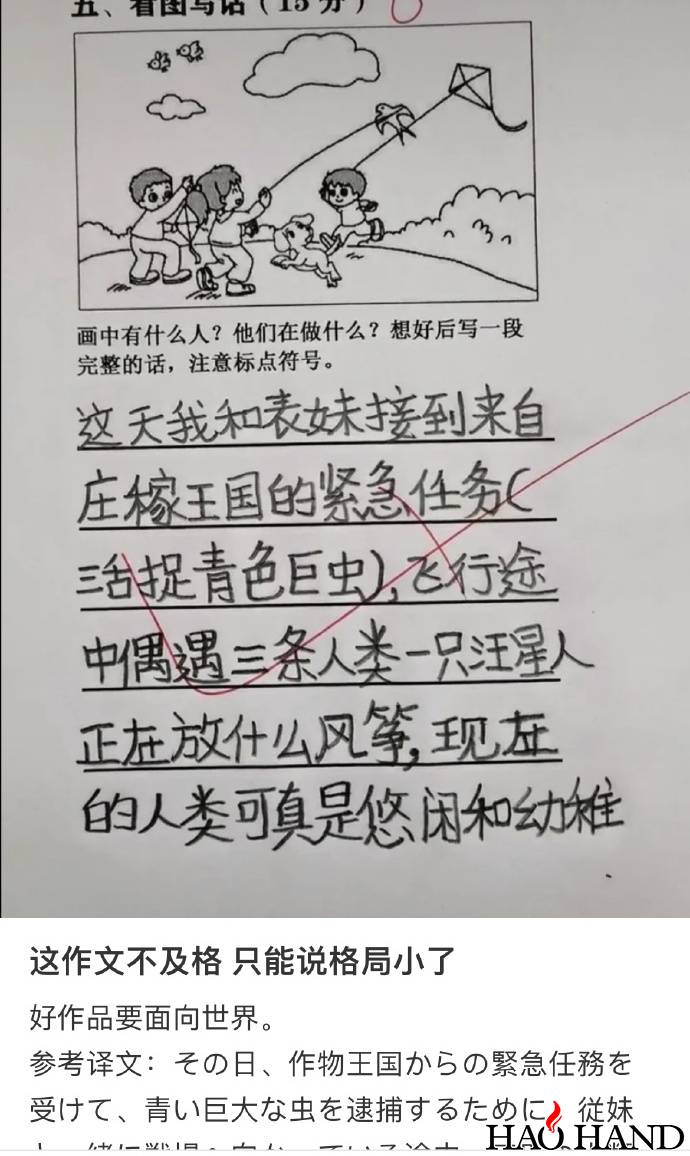 五、看图写话（15分）
画中有什么人？他们在做什么？想好后写一段
完整的话，注意标点符号。
这天我和表妹接到来自
庄稼王国的紧急任务（
活捉青色巨虫），飞行途
中偶遇三条人类一只汪星人
正在放什么风筝，现在
的人类可真是悠闲和幼稚
这作文不及格 只能说格局小了
好作品要面向世界。
参考译文：その日、作物王国からの緊急任務を
受けて、青い巨大な虫を逮捕するために、従妹
HAO HAND